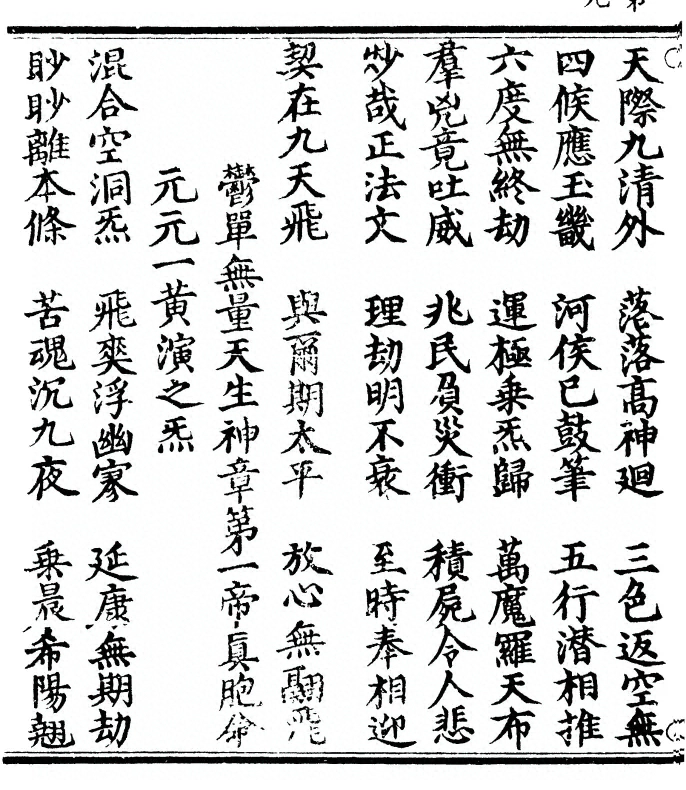 天際九清外　落落高神廻　三色返空無
四候應玉畿　河侯已鼓筆　五行潜相推
六度無終劫　運極乗炁歸　萬魔羅天布
羣兇竟吐威　兆民負災衝　積屍令人悲
玅哉正法文　理劫明不衰　至時奉相迎
契在九天飛　與爾期太平　放心無飛
鬱單無量天生神章第一帝眞胞命
元元一黄演之炁
混合空洞炁　飛爽浮幽寥　延康無期劫
眇眇離本條　苦魂沉九夜　乗晨希陽翹